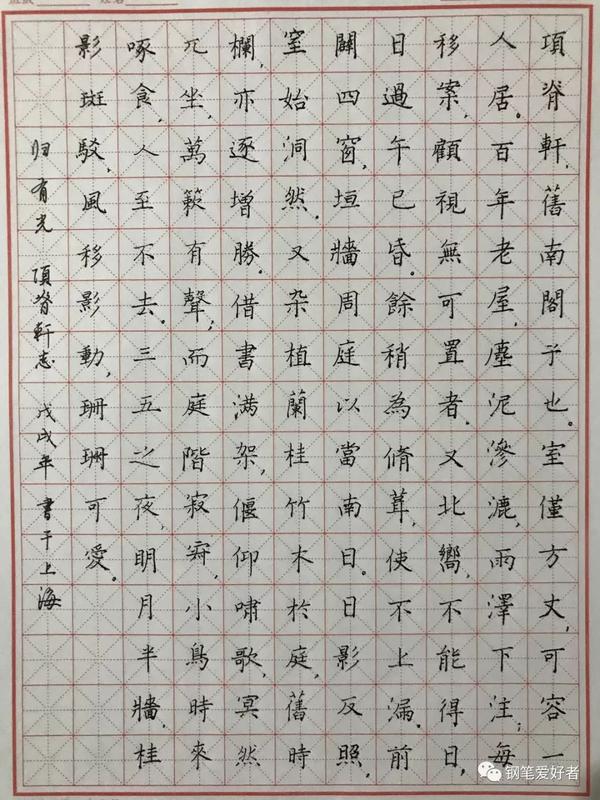 項脊軒,舊南閣子也。室僅方丈,可容一
人居。百年老屋,塵泥滲漉,雨澤下注;每
移案,顧視無可置者。又北嚮,不能得日,
日過午已昏。餘稍為脩葺,使不上漏。前
闢四窗,垣牆周庭以當南日。日影反照,
室始洞然。又杂植蘭桂竹木於庭,舊時
欄,亦逐增勝。借書满架,偃仰啸歌,冥然
兀坐,萬籁有聲;而庭階寂寂,小鳥時來
啄食,人至不去。三五之夜,明月半牆,桂
影斑駁,風移影動,珊珊可愛。
归有光 項脊軒志 戊戌年 書于上海
钢笔爱好者